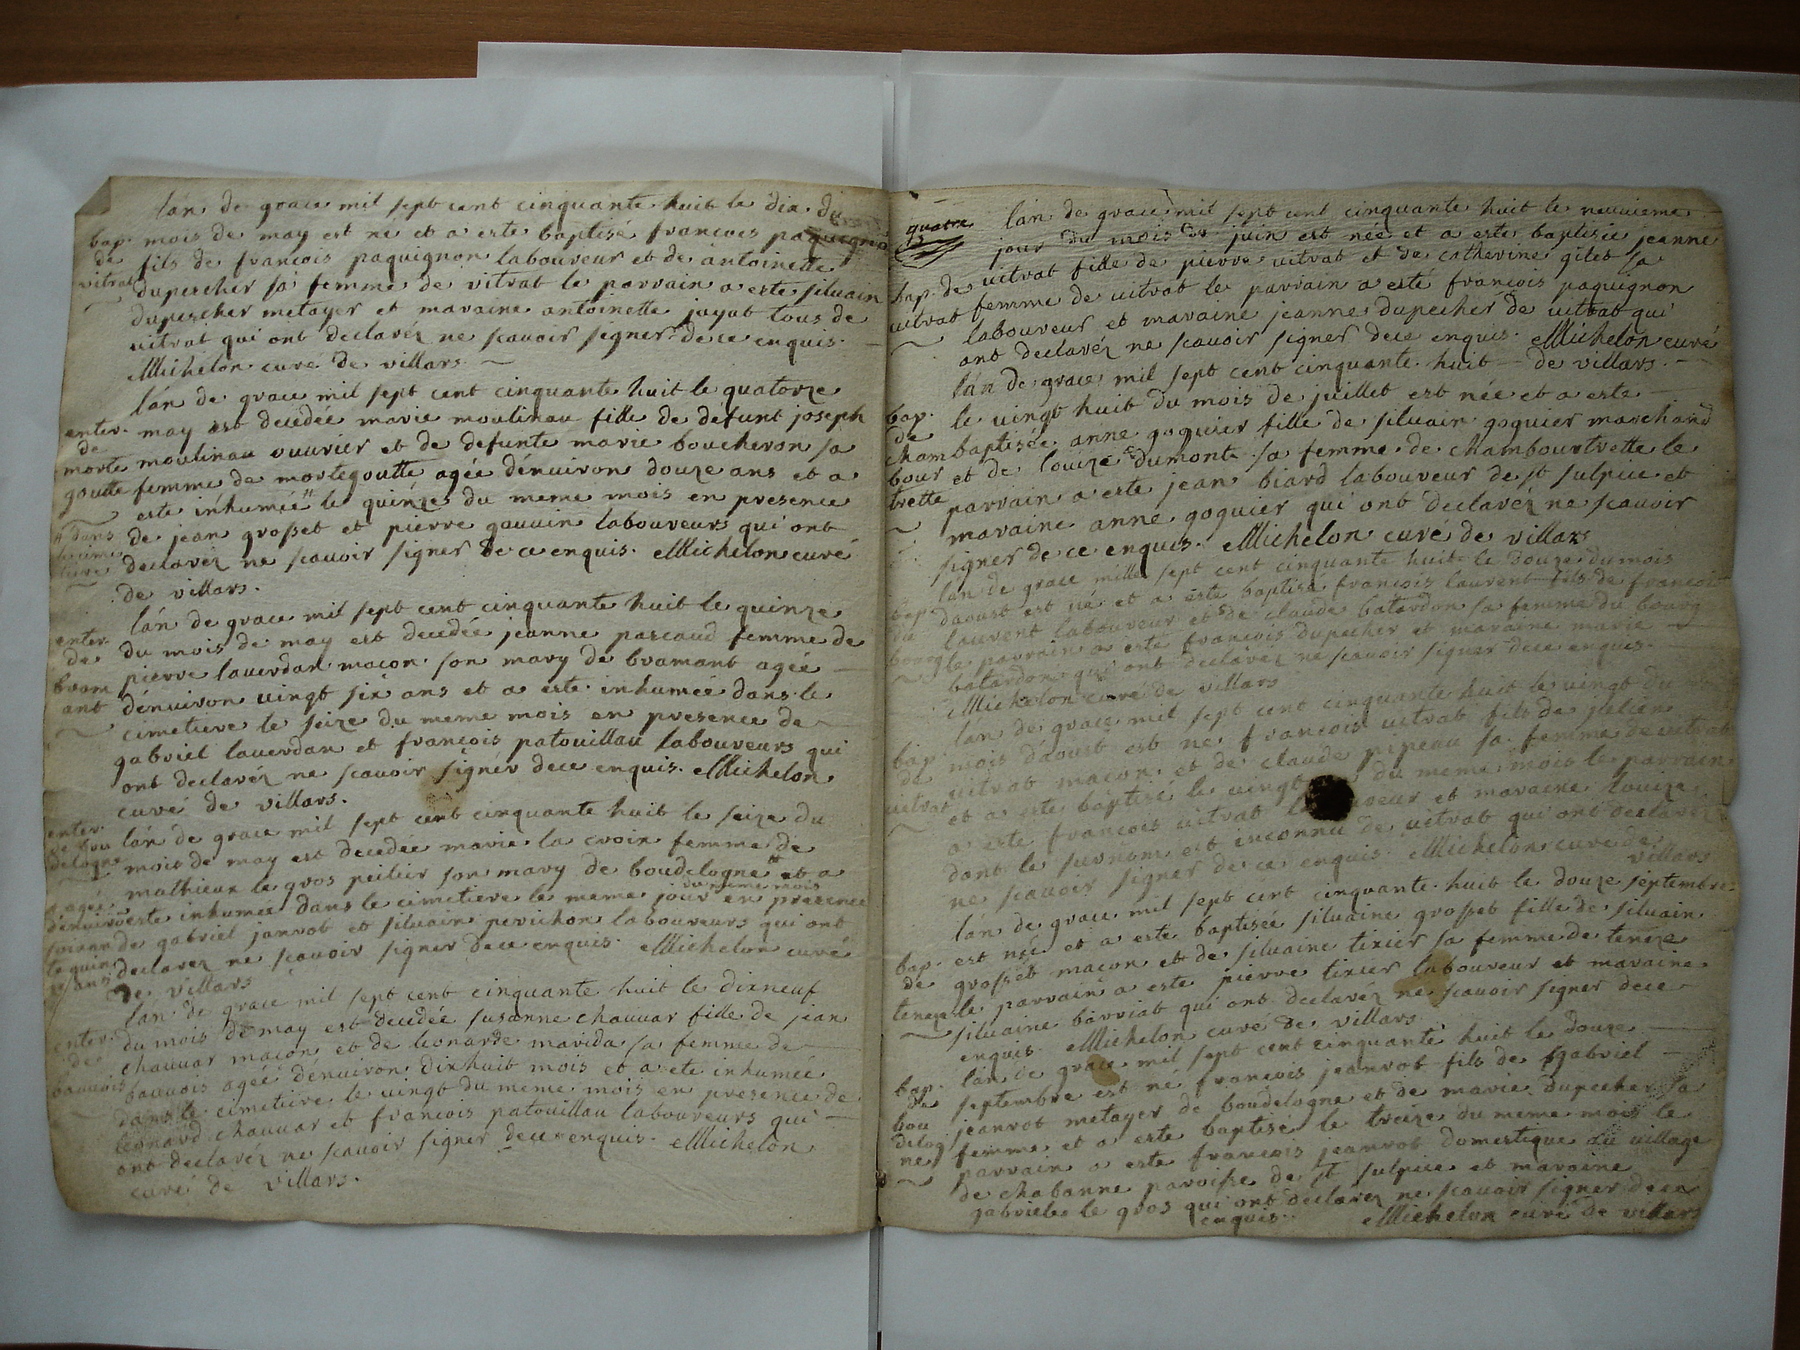 lán de grace mil sept cent cinquante huit le dix du
bap. mois de may est né et a este baptisé francois paquignon
de fils de francois paquignon laboureur et de antoinette
vitrat dupescher sa femme de vitrat le parrain a este siluain
dupescher metayer et maraine antoinette jayat tous de
uitrat qui ont declaréz ne scauoir signer de ce enquis.
Michelon curé de villars.
lán de grace mil sept cent cinquante huit le quatorze
enter. may est decedée marie moulinau fille de défunt joseph
de
morte moulinau ouurier et de defunte marie boucheron sa
goutte femme de mortegoutte agée dénuiron douze ans et a
este inhumée le quinze du meme mois en presence
dans de jean grosset et pierre gauuin laboureurs qui ont
le cime
tiere declaréz ne scauoir signer de ce enquis. Michelon curé
de villars.
lán de grace mil sept cent cinquante huit le quinze
enter. du mois de may est decedée jeanne pascaud femme de
de pierre lauerdan macon son mary de bramant agée
bram dénuiron uingt six ans et a este inhumée dans le
ant cimetiere le seize du meme mois en presence de
gabriel lauerdan et francois patouillau laboureurs qui
ont declaréz ne scauoir signer de ce enquis. Michelon
curé de villars.
enter. lán de grace mil sept cent cinquante huit le seize du
de bou
delogne mois de may est decedée marie la croix femme de
mathieux le gros son mary de boudelogne et a
du meme mois
agée
dénuiron este inhumée dans le cimetiere le meme jour en presence
soixante de gabriel janrot et siluain perichon laboureurs qui ont
quin
ze ans declarez ne scauoir signer de ce enquis. Michelon curé
de villars
lán de grace mil sept cent cinquante huit le dixneuf
enter. du mois de may est decedée susanne chauuar fille de jean
de chauuar macon et de leonarde marida sa femme de
bauuois bauuois agée dénuiron dixhuit mois et a eté inhumée
dans le cimetiere le uingt du meme mois en presence de
leonard chauuar et francois patouillau laboureurs qui
ont declaréz ne scauoir signer de ce enquis. Michelon
curé de villars.
quatre lán de grace mil sept cent cinquante huit le neuuieme
jour du mois de juin est née et a este baptisée jeanne
bap. de uitrat fille de pierre uitrat et de catherine gilet sa
uitrat femme de uitrat le parrain a esté francois paquignon
laboureur et maraine jeanne dupecher de uitrat qui
ont declaréz ne scauoir signer de ce enquis. Michelon curé
lán de grace mil sept cent cinquante huit de villars.
bap. le uingt huit du mois de juillet est née et a este
de
cham baptisée anne goguier fille de siluain goguier marchand
bour et de louize dumont sa femme de chambourtrette le
trette parrain a este jean biard laboureur de st sulpice et
maraine anne goguier qui ont declaréz ne scauoir
signer de ce enquis. Michelon curé de villars
lan de grace mille sept cent cinquante huit le douze du mois
bap. daoust est né et a este baptisé francois laurent fils de francois
du laurent laboureur et de claude batardon sa femme du bourg
bourg le parrain a este francois dupecher et maraine marie
batardon qui ont declaréz ne scauoir signer de ce enquis.
Michelon curé de villars
lan de grace mil sept cent cinquante huit le vingt du
bap. mois daoust est né francois uitrat fils de julien
de uitrat macon et de claude pineau sa femme de uitrat
uitrat et a este baptisé le vingt du meme mois le parrain
a este francois uitrat laboureur et maraine louize
dont le surnom est inconnu de uitrat qui ont declaréz
ne scauoir signer de ce enquis. Michelon curé de
villars
lán de grace mil sept cent cinquante huit le douze septembre
bap. est née et a este baptisée siluaine grosset fille de siluain
de grosset macon et de siluaine tixier sa femme de teneze
teneze le parrain a este pierre tixier laboureur et maraine
siluaine barriat qui ont declaréz ne scauoir signer de ce
enquis. Michelon curé de villars.
lán de grace mil sept cent cinquante huit le douze
bap. septembre est né francois jeanrot fils de gabriel
de
bou jeanrot metayer de boudelogne et de marie dupecher sa
delog femme et a este baptisé le treize du meme mois le
ne parrain a este francois jeanrot domestique au uillage
de chabanne paroisse de st sulpice et maraine
gabriele le gros qui ont declarez ne scauoir signer de ce
enquis. Michelon curé de villars